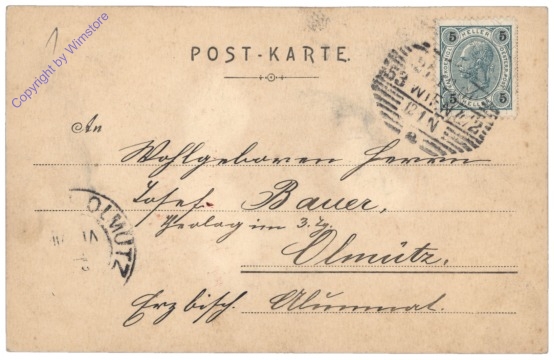 Copyright by Wimstore
1
POST-KARTE.
5 HELLER 5
5 HELLER 5
WIEN
An
Wohlgeboren Herrn
Josef Bauer,
Theolog im 3. Jg.
Olmütz.
Erzbisch. Alumnat.
OLMÜTZ